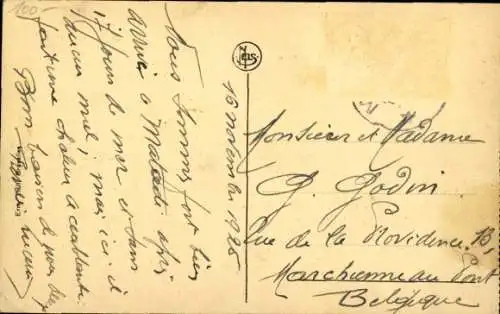 100-
16 novembre 1925
Nous sommes fort bien
arrivé à Matadi après
17 jours de mer et sans
aucun mal, mais ici il
fait une chaleur accablante.
Bons baisers de
NELS
Monsieur et Madame
G. Godin
Rue de la Providence, 13,
Marchienne au Pont
Belgique